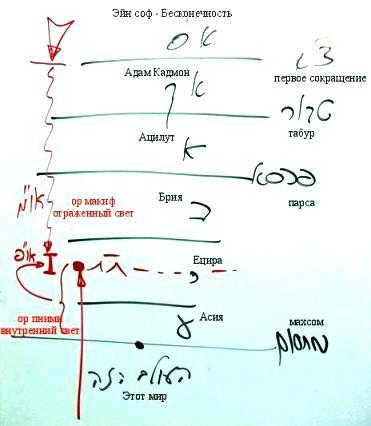 Эйн соф - Бесконечность
א ס
צ"א
Адам Кадмон
первое сокращение
א ק
טבור
Ацилут
табур
א
פרסא
Брия
парса
או"מ
ор макиф
отраженный свет
ב
או"פ
Ецира
י
ор пними
внутренний свет
ע
Асия
махсом
מחסום
העולם הזה
Этот мир